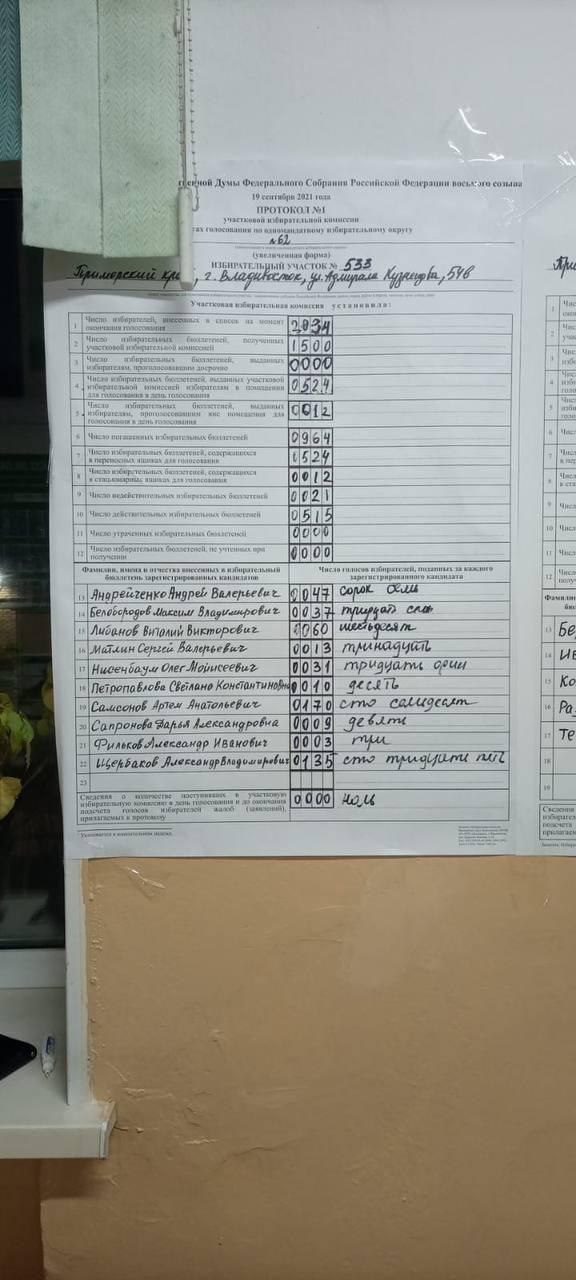 енной Думы Федерального Собрания Российской Федерации восьмого созыва
19 сентября 2021 года
ПРОТОКОЛ №1
участковой избирательной комиссии
тах голосования по одномандатному избирательному округу
№62
(увеличенная форма)
ИЗБИРАТЕЛЬНЫЙ УЧАСТОК № 533
Приморский край, г. Владивосток, ул. Адмирала Кузнецова, 54в
Участковая избирательная комиссия установила:
1 Число избирателей, внесенных в список на момент окончания голосования 2034
2 Число избирательных бюллетеней, полученных участковой избирательной комиссией 1500
3 Число избирательных бюллетеней, выданных избирателям, проголосовавшим досрочно 0000
4 Число избирательных бюллетеней, выданных участковой избирательной комиссией избирателям в помещении для голосования в день голосования 0524
5 Число избирательных бюллетеней, выданных избирателям, проголосовавшим вне помещения для голосования в день голосования 0012
6 Число погашенных избирательных бюллетеней 0964
7 Число избирательных бюллетеней, содержащихся в переносных ящиках для голосования 0524
8 Число избирательных бюллетеней, содержащихся в стационарных ящиках для голосования 0012
9 Число недействительных избирательных бюллетеней 0021
10 Число действительных избирательных бюллетеней 0515
11 Число утраченных избирательных бюллетеней 0000
12 Число избирательных бюллетеней, не учтенных при получении 0000
Фамилии, имена и отчества внесенных в избирательный бюллетень зарегистрированных кандидатов
Число голосов избирателей, поданных за каждого зарегистрированного кандидата
13 Андрейченко Андрей Валерьевич 0047 сорок семь
14 Белобородов Максим Владимирович 0037 тридцать семь
15 Либанов Виталий Викторович 0060 шестьдесят
16 Матлин Сергей Валерьевич 0013 тринадцать
17 Нисенбаум Олег Моисеевич 0031 тридцать один
18 Петропавлова Светлана Константиновна 0010 десять
19 Самсонов Артем Анатольевич 0170 сто семьдесят
20 Сапронова Дарья Александровна 0009 девять
21 Фильков Александр Иванович 0003 три
22 Щербаков Александр Владимирович 0135 сто тридцать пять
23
Сведения о количестве поступивших в участковую избирательную комиссию в день голосования и до окончания подсчета голосов избирателей жалоб (заявлений), прилагаемых к протоколу 0000 ноль